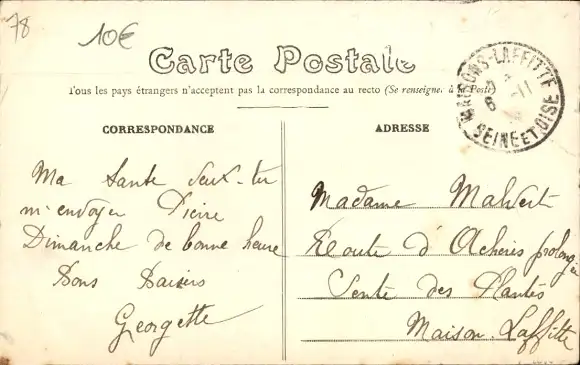 78
10€
Carte Postale
Tous les pays étrangers n'acceptent pas la correspondance au recto (Se renseigner à la Poste)
MAISONS-LAFFITTE
SEINE ET OISE
CORRESPONDANCE
ADRESSE
Ma tante veux-tu
m'envoyer Pierre
Dimanche de bonne heure
Bons Baisers
Georgette
Madame
Route d'Achères prolongée
Sente des Plantés
Maison-Laffitte